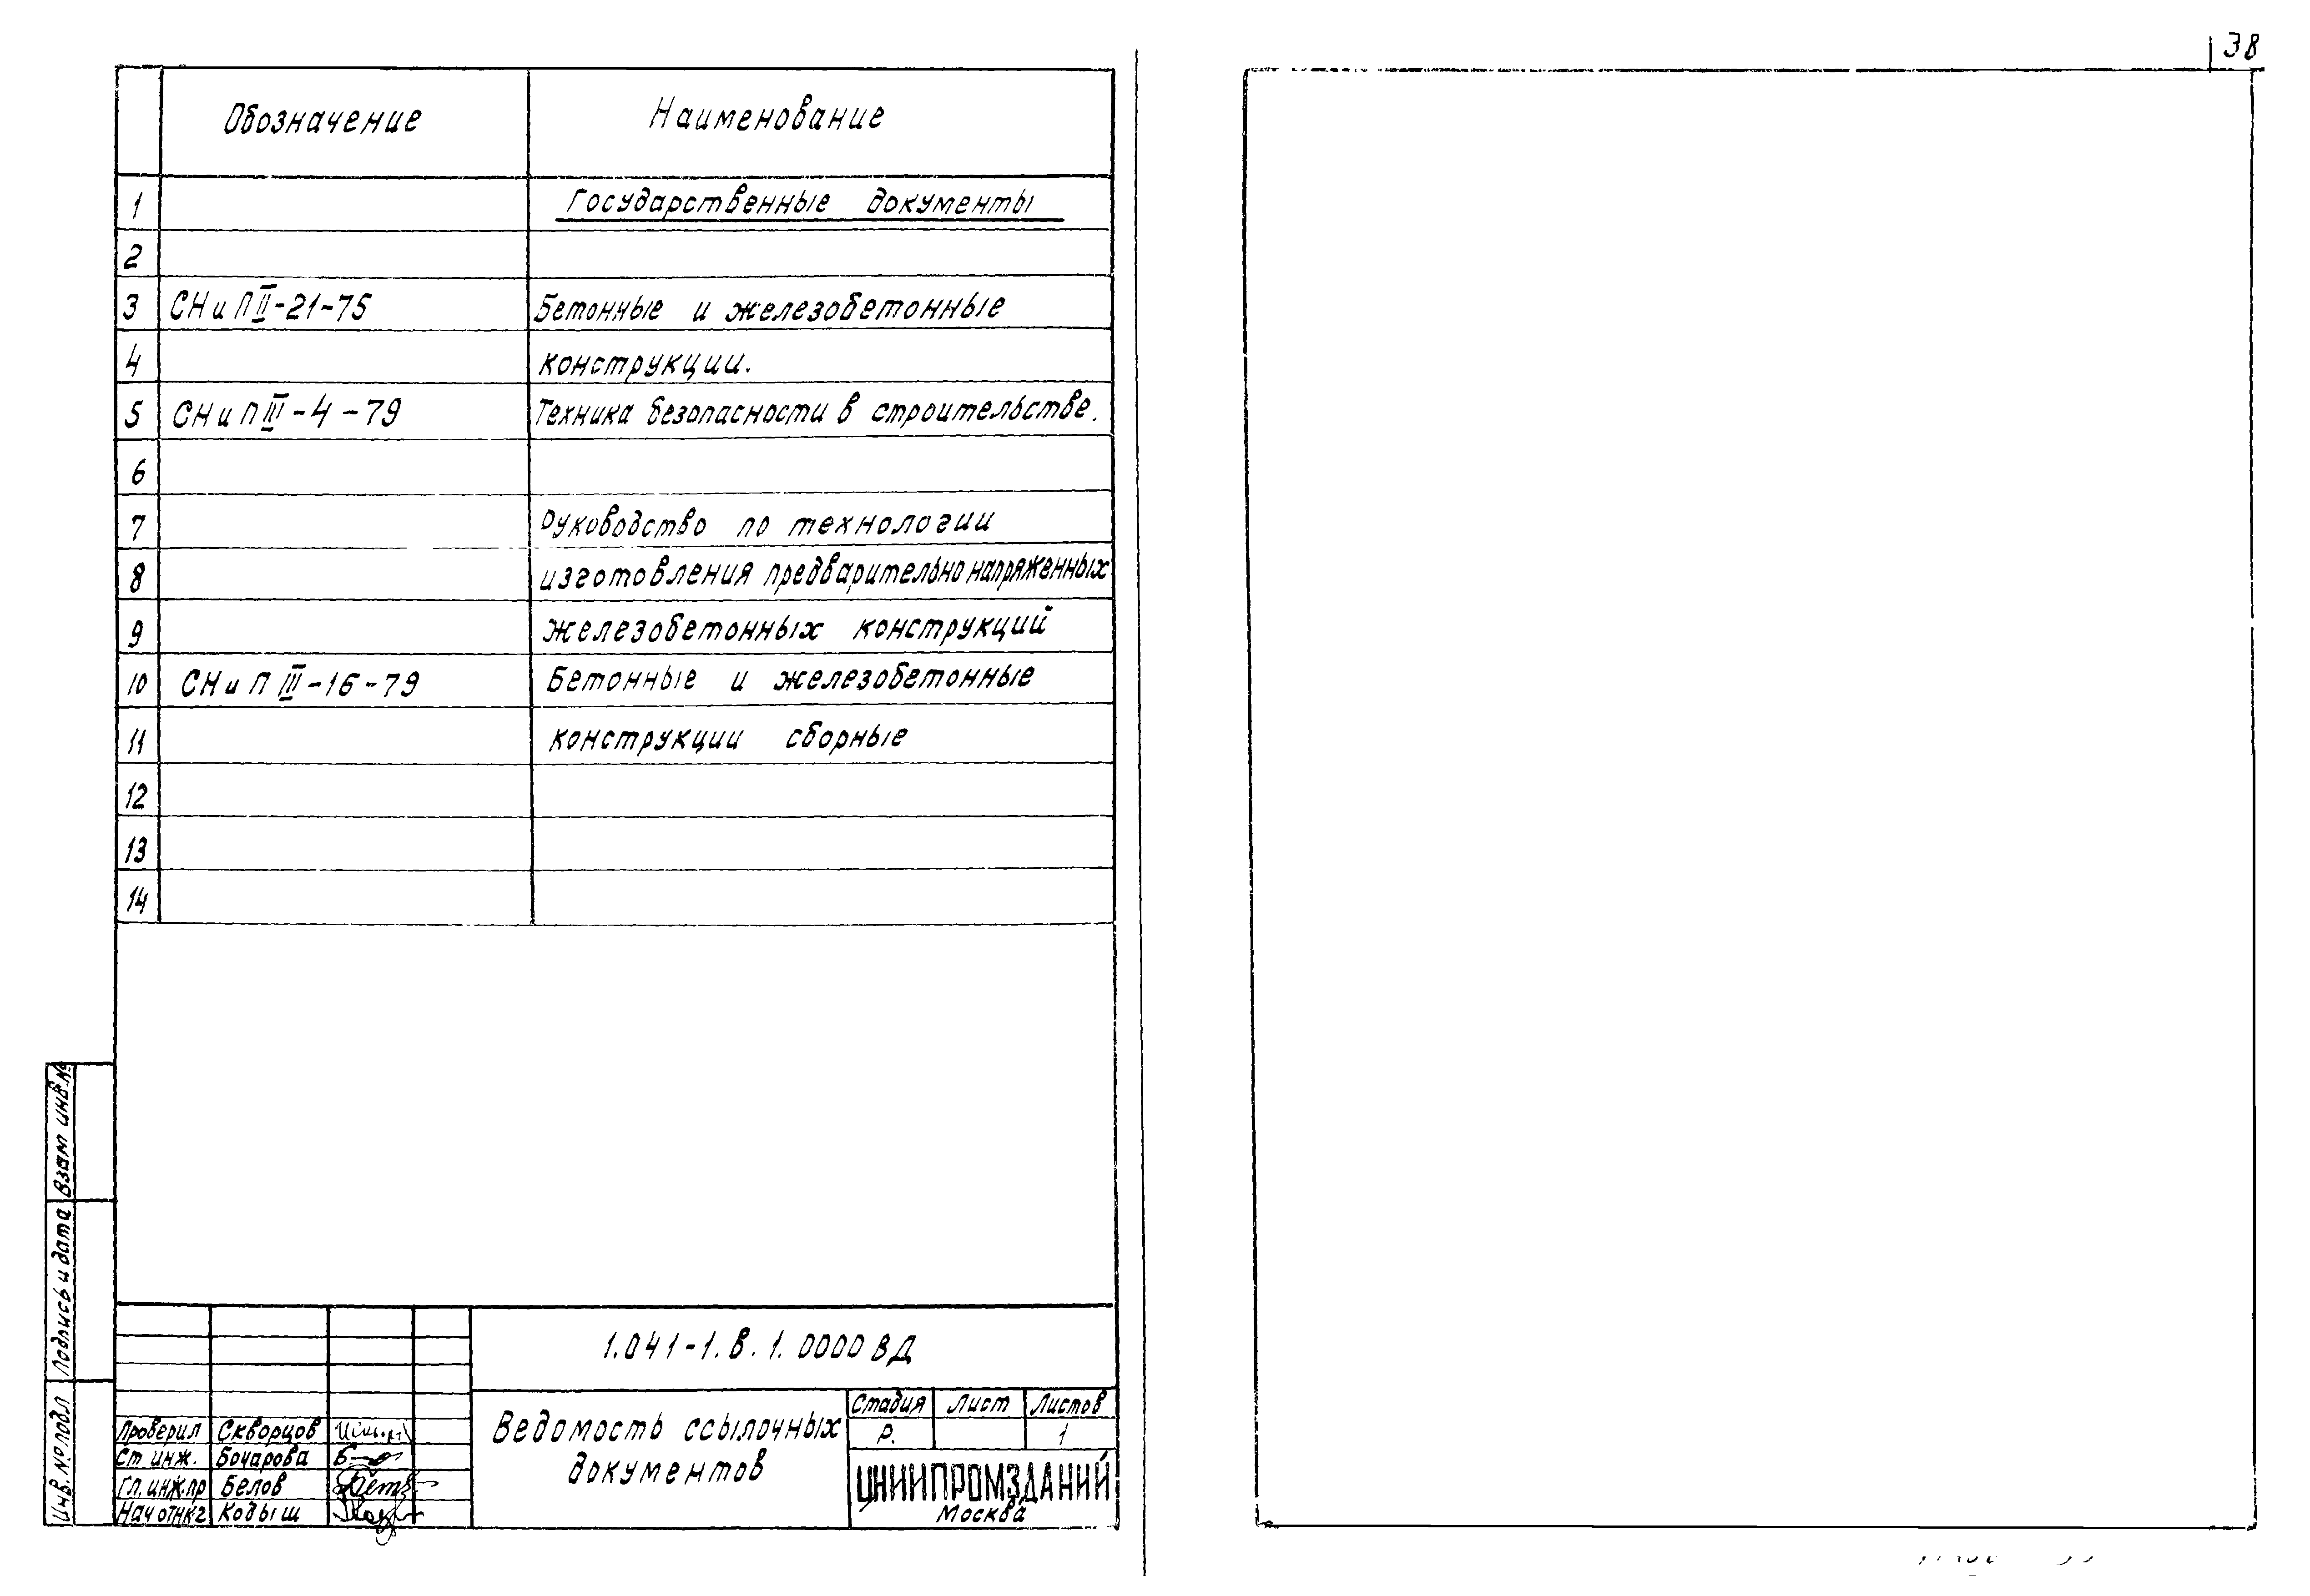 38
Обозначение Наименование
1 Государственные документы
2
3 СНиП II-21-75 Бетонные и железобетонные
4 конструкции.
5 СНиП III-4-79 Техника безопасности в строительстве.
6
7 Руководство по технологии
8 изготовления предварительно напряженных
9 железобетонных конструкций
10 СНиП III-16-79 Бетонные и железобетонные
11 конструкции сборные
12
13
14
Взам инв.№
Подпись и дата
Инв.№ подл
1.041-1.в.1.0000 ВД
Ведомость ссылочных
документов
Стадия Лист Листов
Р. 1
ЦНИИПРОМЗДАНИЙ
Москва
Проверил Скворцов
Ст инж. Бочарова
Гл.инж.пр Белов
Нач отнк2 Кодыш